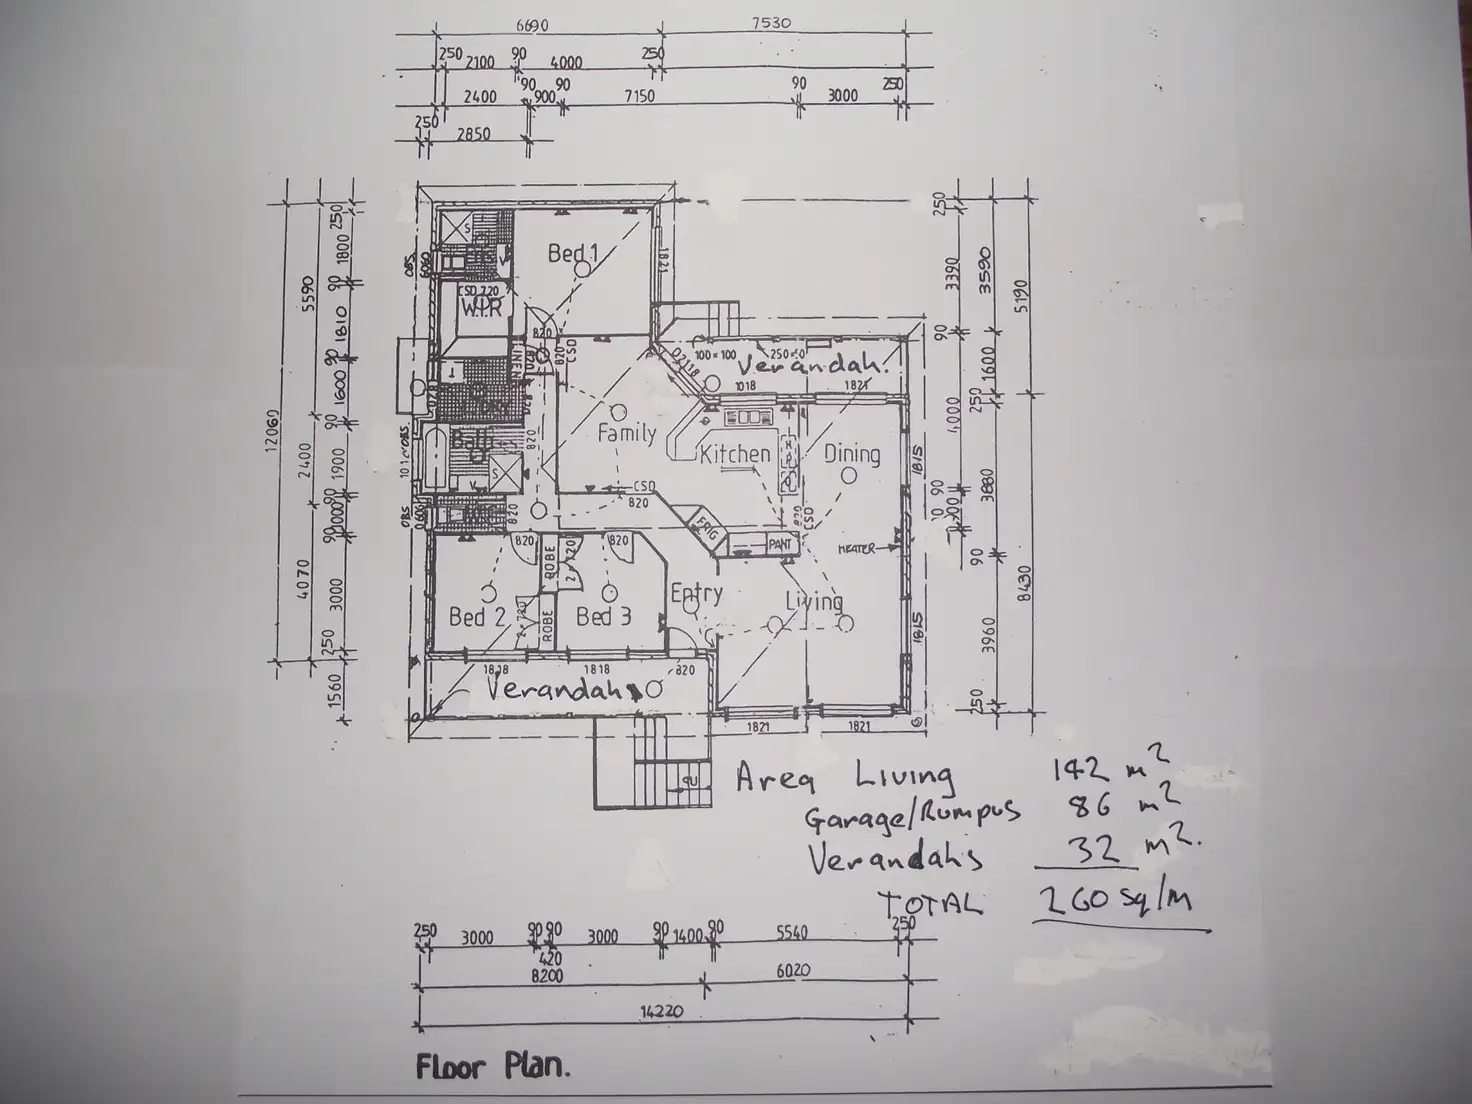 6690 7530
250 2100 90 4000 250
2400 90 900 90 7150 90 3000 250
250 2850
250 1800 90 1810 90 1600 90 1900 90 1000 90 3000 250 1560
5590 2400 4070
12060
250 3390 90 4,000 90 90 3960 250
3590 1600 250 3880 90
5190 8430
OBS
S
Bed 1
1821
CSD 720
W.I.R
820
LINEN
820
820
CSD
D2118
100 × 100
Verandah.
1018
1821
Family
Kitchen
Dining
1815
Bath
S
820
10
OBS
CSD
820
820
CSD
FRIG
PANT
HEATER
820
820
ROBE
2 x 720
Bed 2
2 x 720
ROBE
Bed 3
Entry
Living
1815
1818
1818
820
Verandah
1821
1821
UP
Area Living 142 m²
Garage/Rumpus 86 m²
Verandahs 32 m².
TOTAL 260 sq/m
250 3000 90 90 3000 90 1400 90 5540 250
420
8200 6020
14220
Floor Plan.